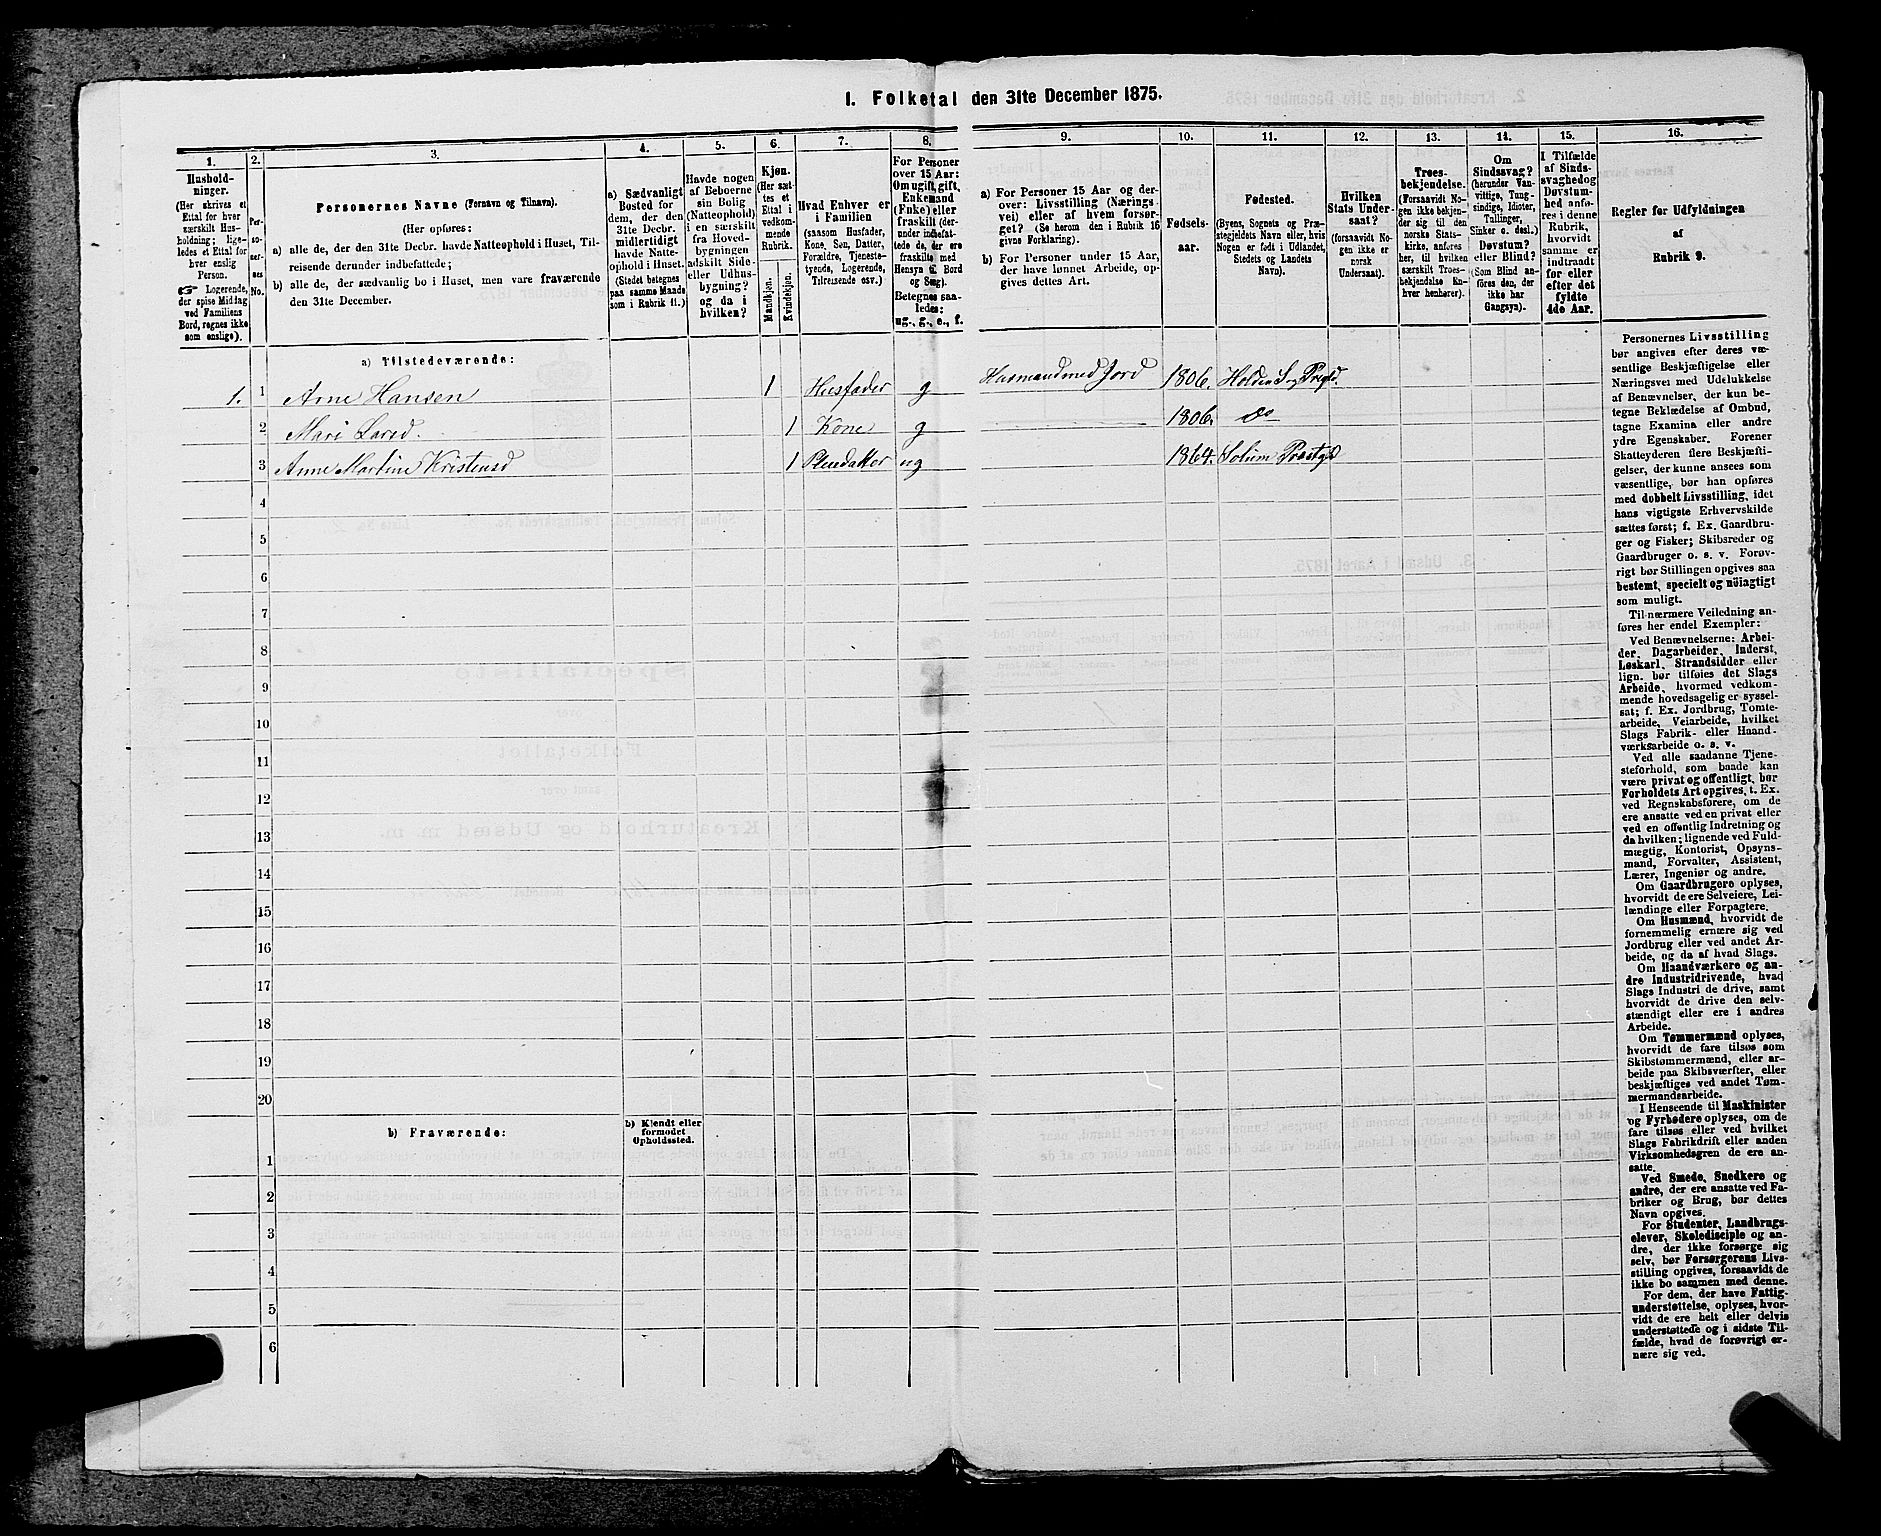 1. Folketal den 31te December 1875.
1.
Hushold-
ninger.
(Her skrives et
Ettal for hver
særskilt Hus-
holdning; lige-
ledes et Ettal for
hver enslig
Person.
Logerende,
der spise Middag
ved Familiens
Bord, regnes ikke
som enslige).
2.
Per-
so-
ner-
nes
No.
3.
Personernes Navne (Fornavn og Tilnavn).
(Her opføres:
a) alle de, der den 31te Decbr. havde Natteophold i Huset, Til-
reisende derunder indbefattede;
b) alle de, der sædvanlig bo i Huset, men vare fraværende
den 31te December.
4.
a) Sædvanligt
Bosted for
dem, der den
31te Decbr.
midlertidigt
havde Natte-
ophold i Huset.
(Stedet betegnes
paa samme Maade
som i Rubrik 11.)
5.
Havde nogen
af Beboerne
sin Bolig
(Natteophold)
i en særskilt
fra Hoved-
bygningen
adskilt Side-
eller Udhus-
bygning?
og da i
hvilken?
6.
Kjøn.
(Her sæt-
tes et
Ettal i
vedkom-
mende
Rubrik.
Mandkjøn.
Kvindekjøn.
7.
Hvad Enhver er
i Familien
(saasom Husfader,
Kone, Søn, Datter,
Forældre, Tjeneste-
tyende, Logerende,
Tilreisende osv.)
8.
For Personer
over 15 Aar:
Om ugift, gift,
Enkemand
(Enke) eller
fraskilt (der-
under indbefat-
tede de, der ere
fraskilte med
Hensyn til Bord
og Seng).
Betegnes saa-
ledes:
ug., g., e., f.
9.
a) For Personer 15 Aar og der-
over: Livsstilling (Nærings-
vei) eller af hvem forsør-
get? (Se herom den i Rubrik 16
givne Forklaring).
b) For Personer under 15 Aar,
der have lønnet Arbeide, op-
gives dettes Art.
10.
Fødsels-
aar.
11.
Fødested.
(Byens, Sognets og Præ-
stegjeldets Navn eller, hvis
Nogen er født i Udlandet,
Stedets og Landets
Navn).
12.
Hvilken
Stats Under-
saat?
(forsaavidt No-
gen ikke er
norsk
Undersaat).
13.
Troes-
bekjendelse.
(Forsaavidt No-
gen ikke bekjen-
der sig til den
norske Stats-
kirke, anføres
her, til hvilken
særskilt Troes-
bekjendelse En-
hver henhører).
14.
Om
Sindssvag?
(herunder Van-
vittige, Tung-
sindige, Idioter,
Tullinger,
Sinker o. desl.)
Døvstum?
eller Blind?
(Som Blind an-
føres den, der
ikke har
Gangsyn).
15.
I Tilfælde
af Sinds-
svaghed og
Døvstum-
hed anfø-
res i denne
Rubrik,
hvorvidt
samme er
indtraadt
før eller
efter det
fyldte
4de Aar.
16.
Regler for Udfyldningen
af
Rubrik 9.
a) Tilstedeværende:
1. 1 Arne Hansen 1 Husfader g Husmand med Jord 1806. Holden S. og Prgjd.
2 Mari Larsd. 1 Kone g 1806. do
3 Anne Martine Kristensd 1 Pleiedatter ug 1864. Solum Præstgd
4
5
6
7
8
9
10
11
12
13
14
15
16
17
18
19
20
b) Fraværende:
b) Kjendt eller
formodet
Opholdssted.
1
2
3
4
5
6
Personernes Livsstilling
bør angives efter deres væ-
sentlige Beskjæftigelse eller
Næringsvei med Udelukkelse
af Benævnelser, der kun be-
tegne Beklædelse af Ombud,
tagne Examina eller andre
ydre Egenskaber. Forener
Skatteyderen flere Beskjæfti-
gelser, der kunne ansees som
væsentlige, bør han opføres
med dobbelt Livsstilling, idet
hans vigtigste Erhvervskilde
sættes først; f. Ex. Gaardbru-
ger og Fisker; Skibsreder og
Gaardbruger o. s. v. Forøv-
rigt bør Stillingen opgives saa
bestemt, specielt og nøiagtigt
som muligt.
Til nærmere Veiledning an-
føres her endel Exempler:
Ved Benævnelserne: Arbei-
der, Dagarbeider, Inderst,
Løskarl, Strandsidder eller
lign. bør tilføies det Slags
Arbeide, hvormed vedkom-
mende hovedsagelig er syssel-
sat; f. Ex. Jordbrug, Tomte-
arbeide, Veiarbeide, hvilket
Slags Fabrik- eller Haand-
værksarbeide o. s. v.
Ved alle saadanne Tjene-
steforhold, som baade kan
være privat og offentligt, bør
Forholdets Art opgives, t. Ex.
ved Regnskabsførere, om de
ere ansatte ved en privat eller
ved en offentlig Indretning og
da hvilken; lignende ved Fuld-
mægtig, Kontorist, Opsyns-
mand, Forvalter, Assistent,
Lærer, Ingeniør og andre.
Om Gaardbrugere oplyses,
hvorvidt de ere Selveiere, Lei-
lændinge eller Forpagtere.
Om Husmænd, hvorvidt de
fornemmelig ernære sig ved
Jordbrug eller ved andet Ar-
beide, og da af hvad Slags.
Om Haandværkere og an-
dre Industridrivende, hvad
Slags Industri de drive, samt
hvorvidt de drive den selv-
stændigt eller ere i andres
Arbeide.
Om Tømmermænd oplyses,
hvorvidt de fare tilsøs som
Skibstømmermænd, eller ar-
beide paa Skibsværfter, eller
beskjæftiges ved andet Tøm-
mermandsarbeide.
I Henseende til Maskinister
og Fyrbødere oplyses, om de
fare tilsøs eller ved hvilket
Slags Fabrikdrift eller anden
Virksomhedsgren de ere an-
satte.
Ved Smede, Snedkere og
andre, der ere ansatte ved Fa-
briker og Brug, bør dettes
Navn opgives.
For Studenter, Landbrugs-
elever, Skoledisciple og an-
dre, der ikke forsørge sig
selv, bør Forsørgerens Livs-
stilling opgives, forsaavidt de
ikke bo sammen med denne.
For dem, der have Fattig-
understøttelse, oplyses, hvor-
vidt de ere helt eller delvis
understøttede og i sidste Til-
fælde, hvad de forøvrigt er-
nære sig ved.